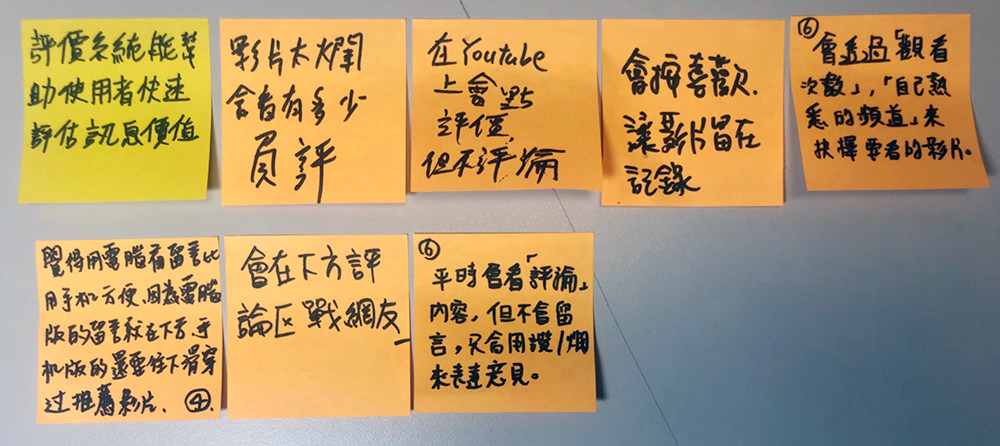 評價系統能幫
助使用者快速
評估訊息價值
影片太爛
會看有多少
負評
在Youtube
上會點
評價,
但不評論
會按喜歡,
讓影片留在
記錄
⑥
會透過「觀看
次數」,「自己熟
悉的頻道」來
抉擇要看的影片。
覺得用電腦看留言比
用手机方便,因為電腦
版的留言就在下方,手
机版的還要往下滑穿
过推薦影片. ④
會在下方評
論区戰網友
⑥
平時會看「評論」
內容,但不會留
言,只會用讚/爛
來表達意見。